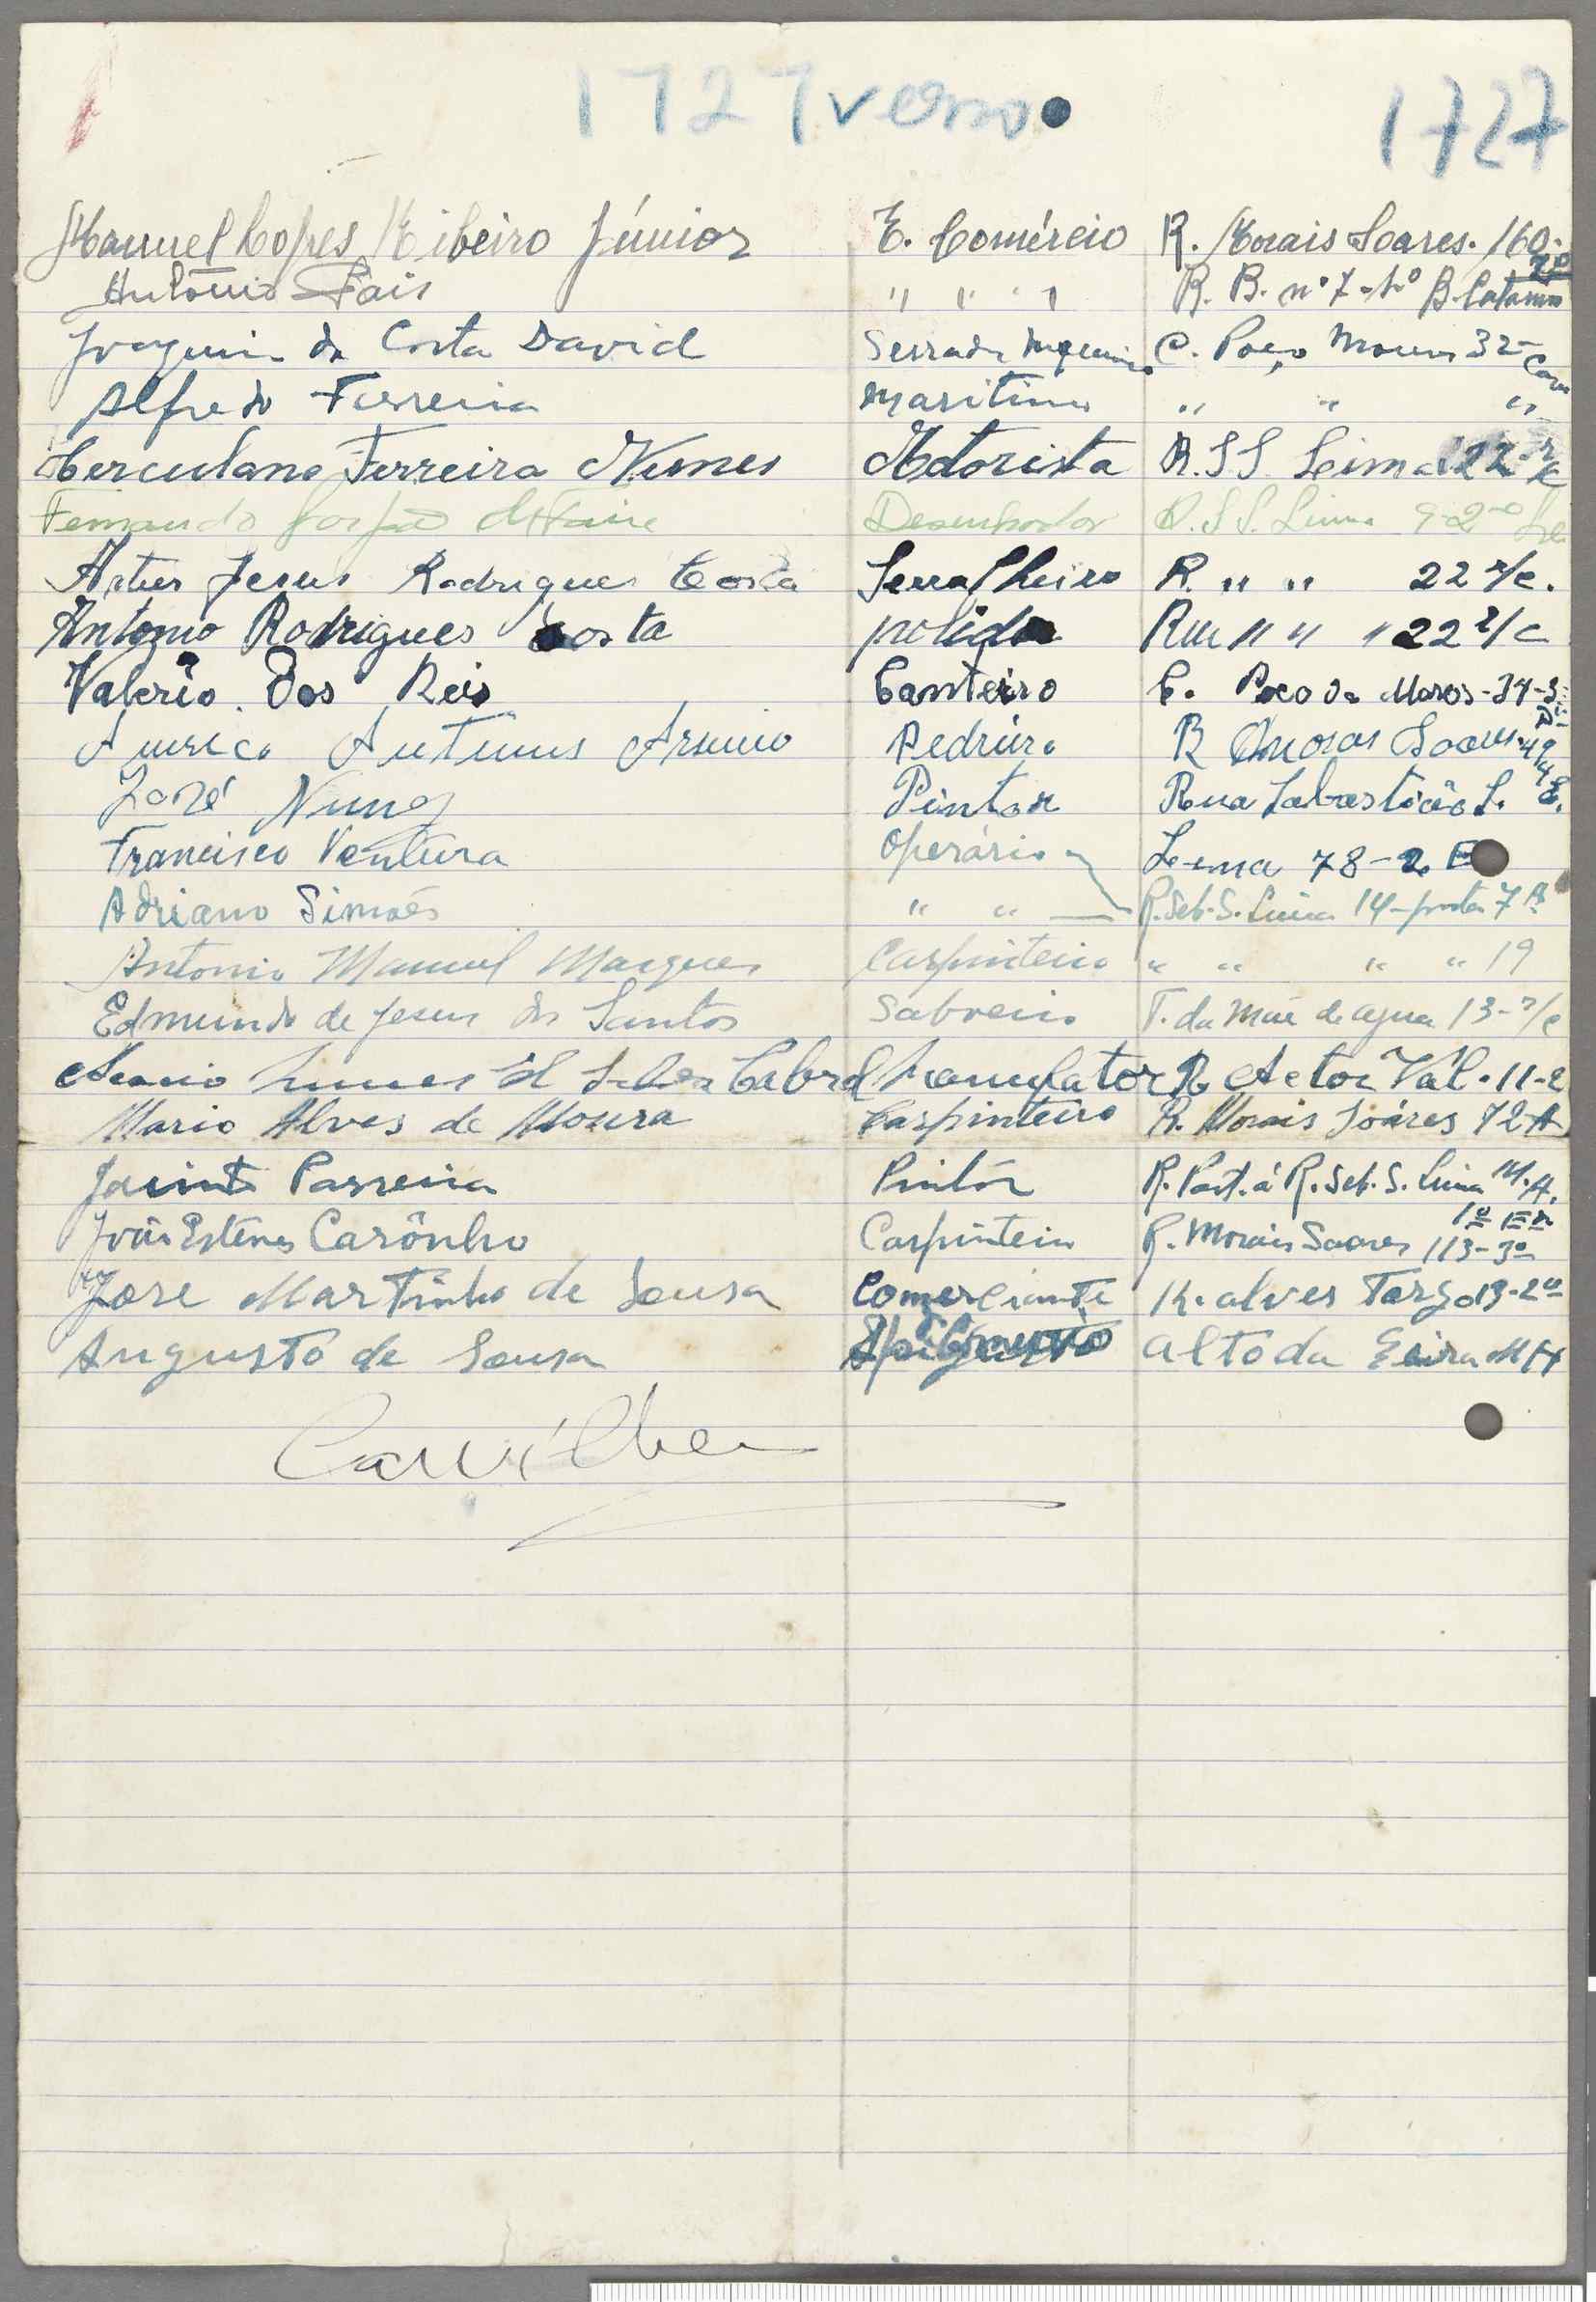 1727 verso 1727
Manuel Lopes Ribeiro Júnior E. Comércio R. Morais Soares. 160-2º
António Pais " " " R. B. nº 7-1º B.
Joaquim da Costa David Serrador C. Poço Mouros 32-
Alfredo Ferreira maritimo " " "
Herculano Ferreira Nunes Motorista R. S S Leima 22 r/c
Fernando R. S S. Lima 9-2º
Artur Jesus Rodrigues Costa Serralheiro R. " " 22 r/c.
Antonio Rodrigues Costa polidor Rua " " " 22 r/c
Valerio. dos Reis Canteiro C. Poco da Moros-34-3
Americo Antunes Pedreiro R Morais Soares 49
José Nunes Pintor Rua Sabastião S. E.
Francisco Ventura Operário Lema 78-2
Adriano Simões " " R. Seb. S. Lima 14-porta 7
Antonio Manuel Marques Carpinteiro " " " " 19
Edmundo de Jesus dos Santos T. da Mãe de agua 13-r/c
Cabral R. Actor Vál. 11-2
Mario Alves de Moura Carpinteiro R. Morais Soáres 72A
Jacinto Parreira Pintôr R. Part. á R. Seb. S. Lima M.A.
João Esteves Carônho Carpinteiro R. Morais Soares 113-3º
José Martinho de Sousa Comerciante R. alves Torgo 19-2º
Augusto de Sousa alto da Eeira MH